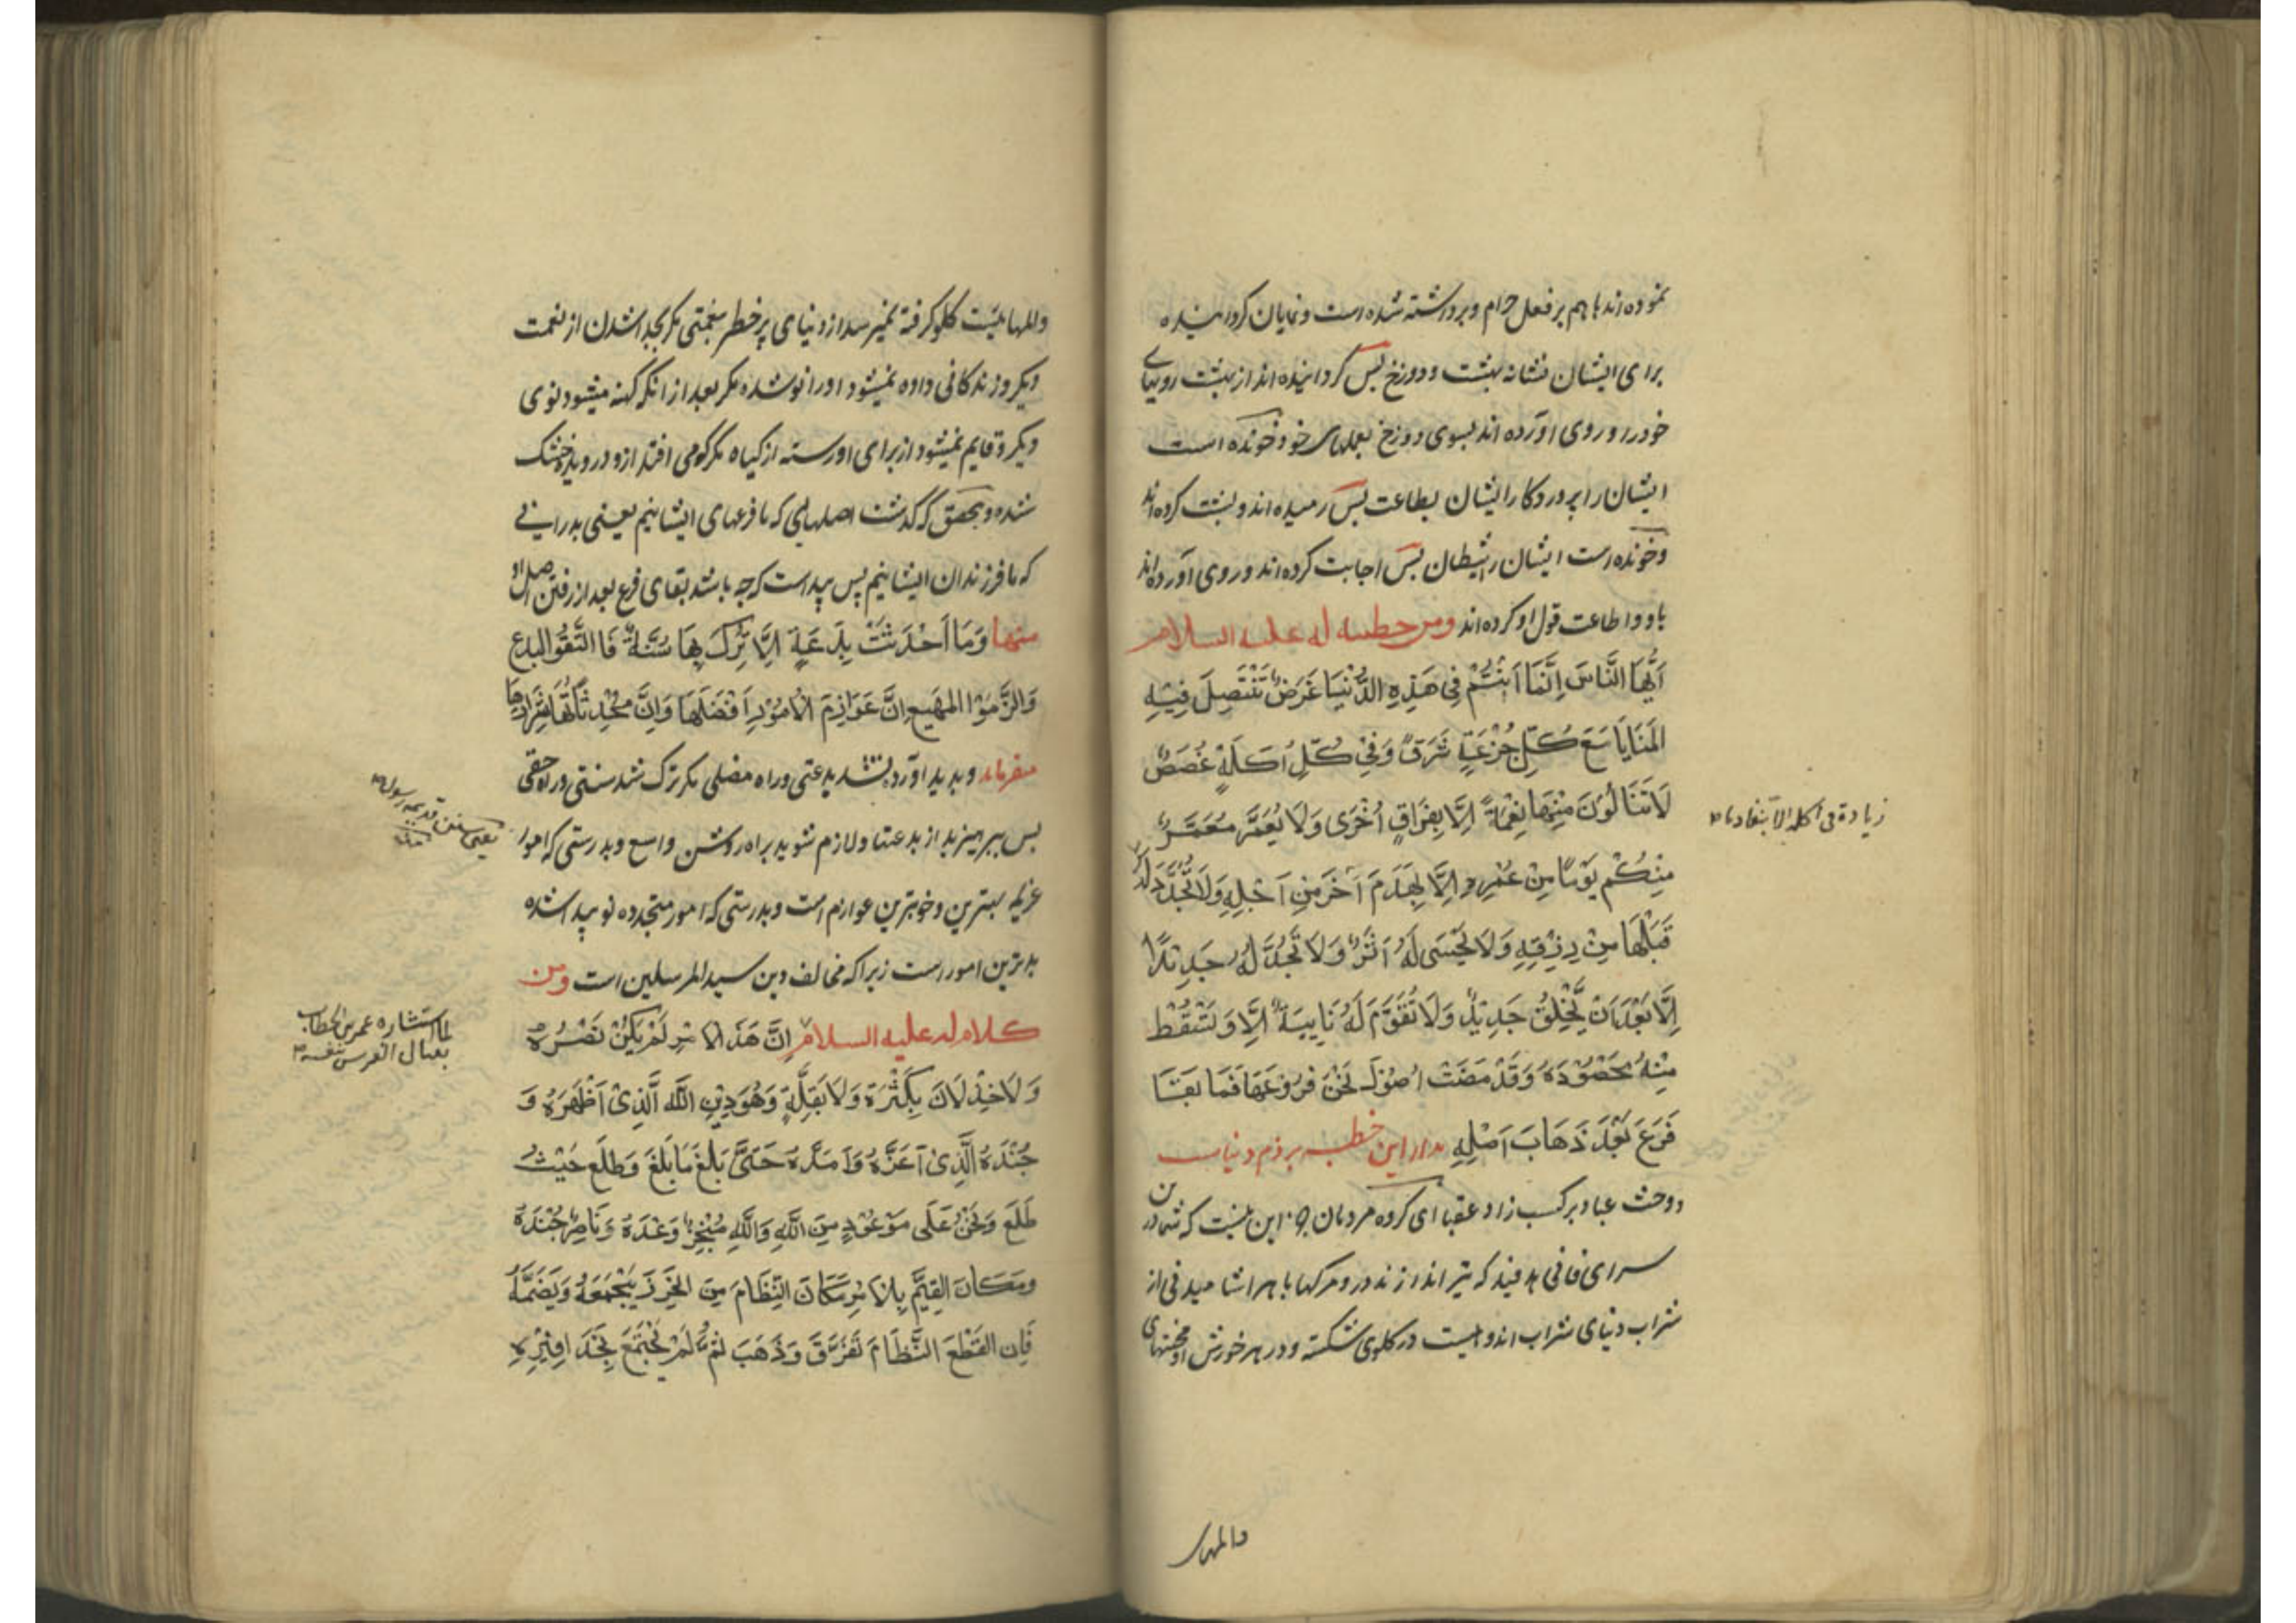 نموده اند باهم بر فعل حرام و برداشته شده است و نمایان کردانیده
برای ایشان نشانه بهشت و دوزخ پس کردانیده اند از بهشت رویهای
خود را و روی آورده اند بسوی دوزخ بعملهای خود و خونده است
ایشان را پروردکار ایشان بطاعت پس رمیده اند و پشت کرده اند
و خونده است ایشان را شیطان پس اجابت کرده اند و روی آورده اند
باو و اطاعت قول او کرده اند ومن خطبه له علیه السلام
اَیُّهَا النَّاسَ اِنَّمَا اَنْتُمْ فِی هَذِهِ الدُّنْیَا غَرَضٌ تَنْتَصِلَ فِیْهِ
المَنَایَا مَعَ کُلِّ جُرْعَةٍ شَرَقٌ وَفِیْ کُلِّ اَکَلَةٍ غُصَصٌ
لَاتَنَالُوْنَ مِنْهَا نِعْمَةً اِلَّا بِفِرَاقِ اُخْرَی وَلَا یُعَمَّرُ مُعَمَّرٌ
زیادة فی اکله الّا بنفاد ما
مِنْکُمْ یَوْمًا مِنْ عُمْرِهِ اِلَّا بِهَدَمِ آخَرَ مِنْ اَجَلِهِ وَلَا تُجَدَّدُ لَهُ
قَبْلَهَا مِنْ رِزْقِهِ وَلَا یَحْیَی لَهُ اَثَرٌ وَلَا تَجُدَّدَ لَهُ جَدِیْدًا
اِلَّا بَعْدَ اَنْ یَخْلِقُ جَدِیْدٌ وَلَا تُقَوَّمَ لَهُ نَابِیَةٌ اِلَّا وَتَسْقُطُ
مِنْهُ مَحْصُوْدَةٌ وَقَدْ مَضَتْ اُصُوْلٌ نَحْنُ فُرُوْعُهَا فَمَا بَقَا
فَرَعَ بَعْدَ ذَهَابَ اَصْلِهِ مدار این خطبه بر ذم دنیاست
و حث عباد بر کسب زاد عقبا ای کروه مردمان جز این نیست که شما در این
سرای فانی هدفید که تیر اندازند در و مرکها با هر اشامیدنی از
شراب دنیای شراب اندوهیست در کلوی شکسته و در هر خورش او محنتهای
والمهای
والمهایست کلو کرفته نمیرسد از دنیای پر خطر بنعمتی مکر بجدا شدن از نعمت
دیکر و زندکانی داده نمیشود اورا نو شده مکر بعد از انکه کهنه میشود نوی
دیکر و قایم نمیشود از برای او رسته از کیاه مکر کو می افتد ازو درویده خشک
شده و بتحقق که کذشت اصلهای که ما فرعهای ایشانیم یعنی پدرانی
که ما فرزندان ایشانیم پس پیداست که چه باشد بقای فرع بعد از رفتن اصل او
منها وَمَا اَحْدَثَتْ بِدْعَةٍ اِلَّا تُرِکَ بِهَا سُنَّةٌ فَاالتَّقُوا البدع
وَالزَمُوْا المَهیع اِنَّ عَوَازِمَ الْاُمُوْرِ اَفْضَلُهَا وَاِنَّ مُحْدِثَاتُهَا شِرَارُهَا
میفرماید و پدید آورده نشد بدعتی و راه مضلی مکر ترک شد سنتی و راه حقی
پس بپرهیزید از بدعتها و لازم شوید براه روشن واسع و بدرستی که امور
یعنی سنن قدیمه رسول
عزیمه بهترین و خوبترین عوازم است و بدرستی که امور متجدده نو پیدا شده
بدترین امور است زیراکه مخالف دین سید المرسلین است ومن
کلام له علیه السلام اِنَّ هَذَ الْاَمْرِ لَمْ یَکُنْ نَصْرُهُ
لما استشاره عمر بن الخطاب
بقتال الفرس بنفسه
وَلَا خِذْلَانَ بِکَثْرَةٍ وَلَا بَقِلَّةٍ وَهُوَ دِیْنِ اللهِ الَّذِیْ اَظْهَرَهُ وَ
جُنْدَهُ الَّذِیْ اَعَدَّهُ وَاَمَدَّهُ حَتَیَّ بَلَغَ مَا بَلَغَ وَطَلَعَ حَیْثُ
طَلَعَ وَنَحْنُ عَلَی مَوْعُوْدٍ مِنَ اللهِ وَاللهِ مُنْجِزٌ وَعْدَهُ وَنَاصِرٌ جُنْدَهُ
وَمَکَانَ القِیَّمِ بِالْاَمْرِ مَکَانَ النِّظَامِ مِنَ الخَرَزِ یَجْمَعُهُ وَیَضَمَّهُ
فَاِن انْقَطَعَ النَّظَامَ تَفَرَّقَ وَذَهَبَ ثُمَّ لَمْ یَجْتَمَعَ بِحَذَافِیْرِهِ